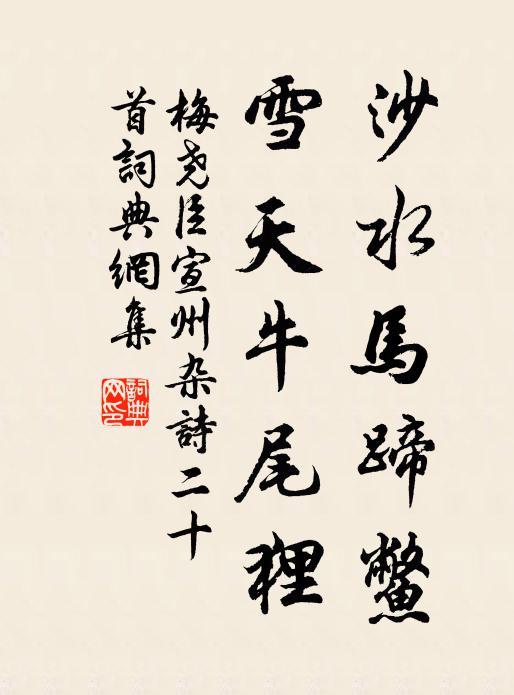 沙水馬蹄鱉
雪天牛尾狸
梅尧臣宣州杂詩二十
首詞典網集
詞典
网印